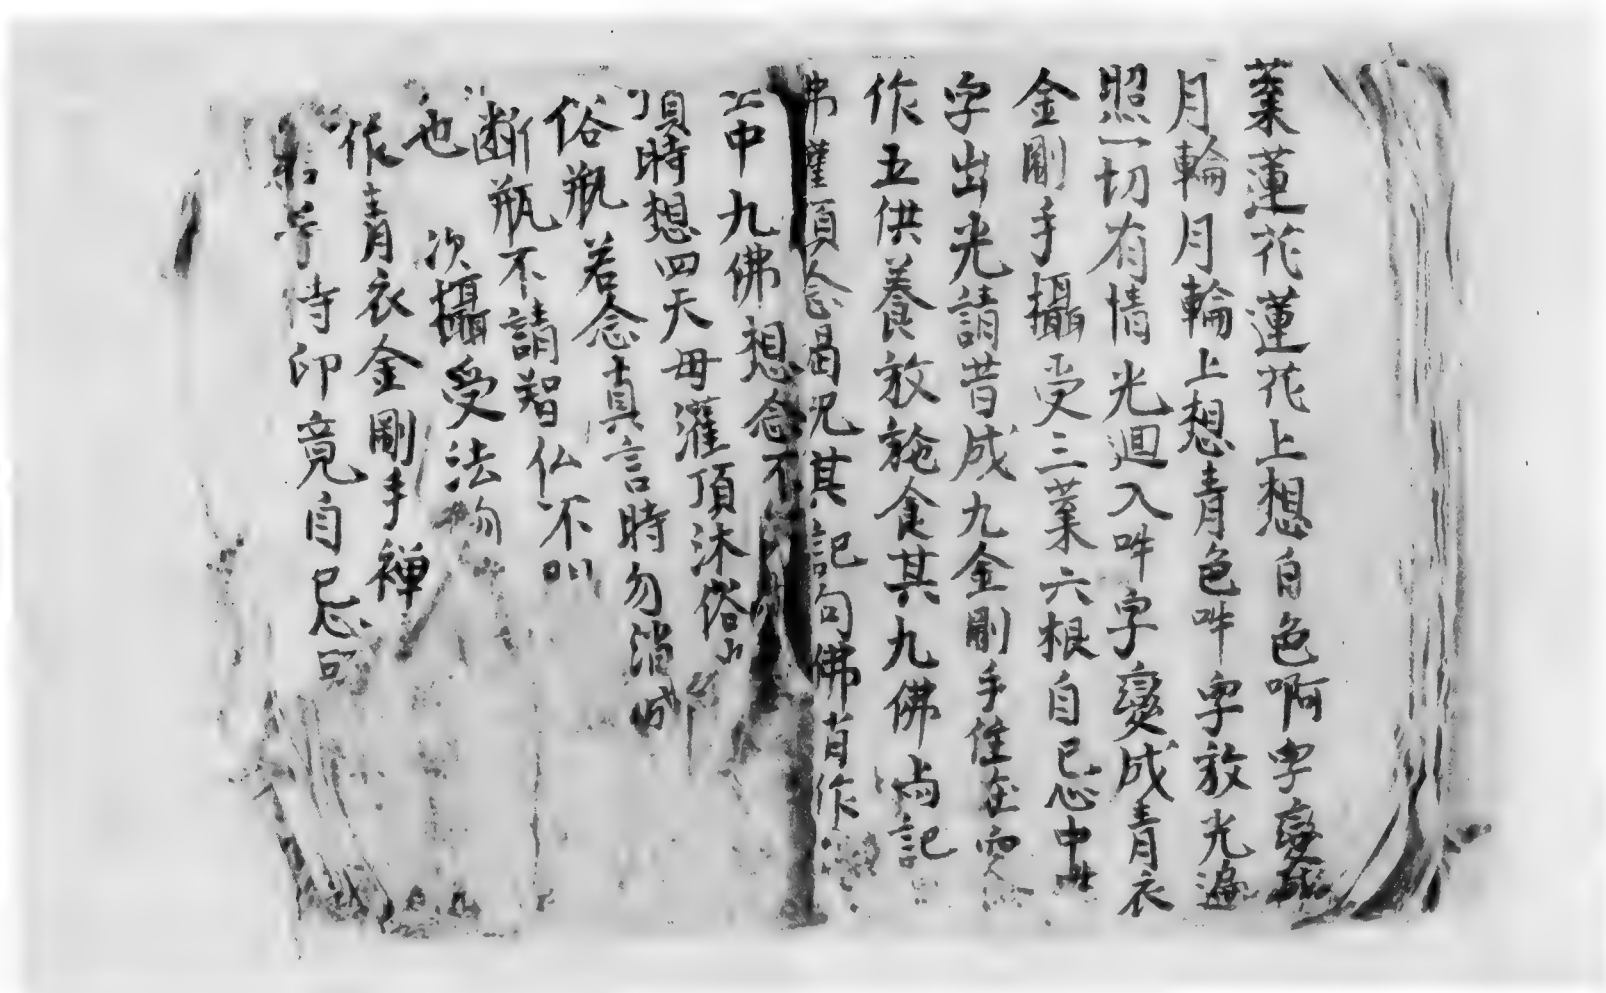 葉蓮花蓮花上想白色啊字變成
月輪月輪上想青色吽字放光遍
照一切有情光迴入吽字變成青衣
金剛手攝受三業六根自己心中吽
字出光請昔成九金剛手住在空
作五供養放施食其九佛尚記
佛灌頂念曷咒其記句佛昔作
空中九佛想念不
頂時想四天母灌頂沐俗
俗瓶若念真言時勿消成
斷瓶不請智仏不
也 次攝受法物
作青衣金剛手禪
等持印竟自己心